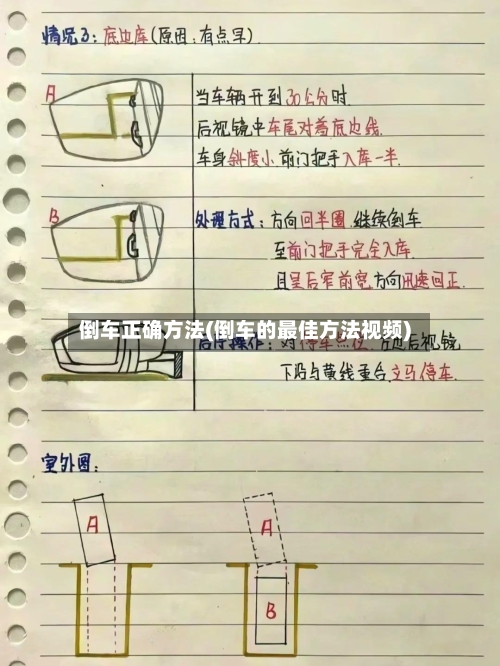 情况3：底边库(原因：有点早).
A
当车辆开到30公分时.
后视镜中车尾对着底边线.
车身斜度小.前门把手入库一半.
B
处理方式：方向回半圈.继续倒车
至前门把手完全入库.
且呈后窄前宽.方向迅速回正.
倒车正确方法(倒车的最佳方法视频)
后视镜
下沿与黄线重合.立马停车.
室外图：
A
A
B